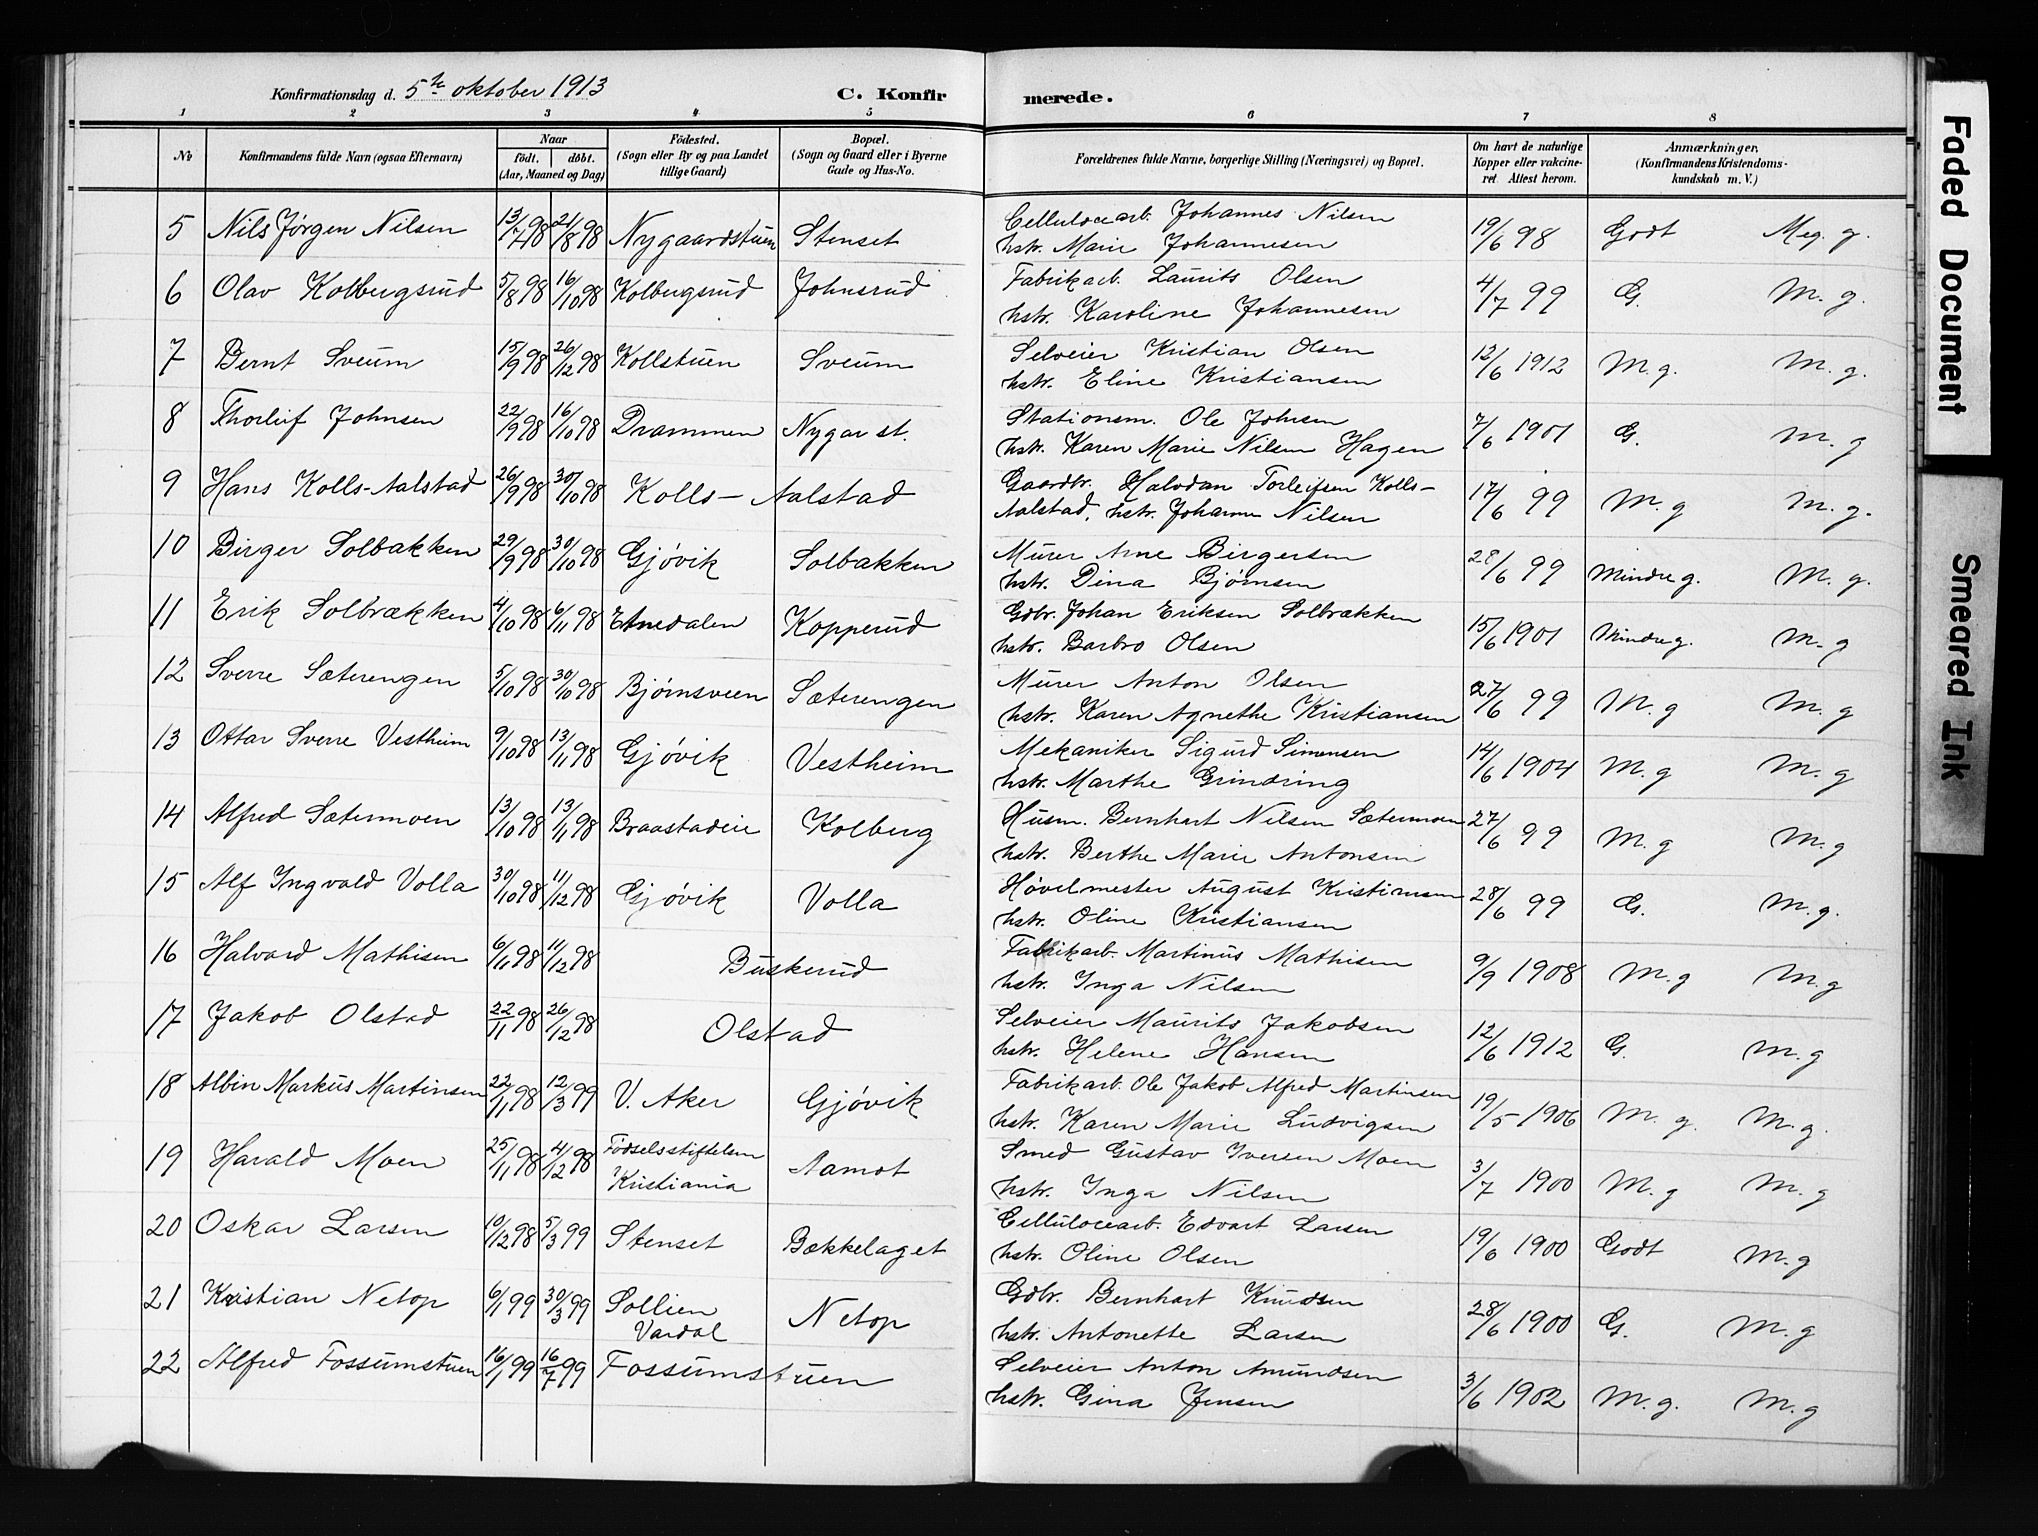 Konfirmationsdag d. 5te oktober 1913 C. Konfirmerede.
1 2 3 4 5 6 7 8
No Konfirmandens fulde Navn (ogsaa Efternavn) Naar født. døbt. (Aar, Maaned og Dag) Fødested. (Sogn eller By og paa Landet tillige Gaard) Bopæl. (Sogn og Gaard eller i Byerne Gade og Hus-No. Forældrenes fulde Navne, borgerlige Stilling (Næringsvei) og Bopæl. Om havt de naturlige Kopper eller vakcineret Attest herom. Anmærkninger, (Konfirmandens Kristendomskundskab m. V.)
5 Nils Jørgen Nilsen 13/7 98 21/8 98 Nygaardstuen Stenset Cellulocearb. Johannes Nilsen 19/6 98 Godt Meg. g.
hstr. Marie Johannesen
6 Olav Kolbergsrud 5/8 98 16/10 98 Kolbergsrud Johnsrud Fabrikarb. Laurits Olsen 4/7 99 G. M. g.
hstr. Karoline Johannesen
7 Bernt Sveum 15/9 98 26/12 98 Kollstuen Sveum Selveier Kristian Olsen 12/6 1912 M. g. M. g.
hstr. Eline Kristiansen
8 Thorleif Johnsen 22/9 98 16/10 98 Drammen Nygar st. Stationsm. Ole Johnsen 7/6 1901 G. M. g
hstr. Karen Marie Nilsen Hagen
9 Hans Kolls-Aalstad 26/9 98 30/10 98 Kolls- Aalstad Gaardbr. Halvdan Torleifsen Kolls- 17/6 99 M. g M. g.
Aalstad, hstr. Johanne Nilsen
10 Birger Solbakken 29/9 98 30/10 98 Gjøvik Solbakken Murer Arne Birgersen 28/6 99 Mindre g. M. g.
hstr. Dina Bjørnsen
11 Erik Solbrækken 4/10 98 6/11 98 Etnedalen Kopperud Gdbr. Johan Eriksen Solbrækken 15/6 1901 Mindre g. M. g
hstr. Barbro Olsen
12 Sverre Sæterengen 5/10 98 30/10 98 Bjørnsveen Sæterengen Murer Anton Olsen 27/6 99 M. g M. g
hstr. Karen Agnethe Kristiansen
13 Ottar Sverre Vestheim 9/10 98 13/11 98 Gjøvik Vestheim Mekaniker Sigurd Simensen 14/6 1904 M. g M. g
hstr. Marthe Grindring
14 Alfred Sætermoen 13/10 98 13/11 98 Braastadeie Kolberg Husm. Bernhart Nilsen Sætermoen 27/6 99 M. g M. g
hstr. Berthe Marie Antonsen
15 Alf Ingvald Volla 30/10 98 11/12 98 Gjøvik Volla Høvelmester August Kristiansen 28/6 99 G. M. g.
hstr. Oline Kristiansen
16 Halvard Mathisen 6/11 98 11/12 98 Buskerud Fabrikarb. Martinus Mathisen 9/9 1908 M. g M. g
hstr. Inga Nilsen
17 Jakob Olstad 22/11 98 26/12 98 Olstad Selveier Maurits Jakobsen 12/6 1912 G. M. g
hstr. Helene Hansen
18 Albin Markus Martinsen 22/11 98 12/3 99 V. Aker Gjøvik Fabrikarb. Ole Jakob Alfred Martinsen 19/5 1906 M. g. M. g.
hstr. Karen Marie Ludvigsen
19 Harald Moen 25/11 98 4/12 98 Fødselsstiftelsen Aamot Smed Gustav Iversen Moen 3/7 1900 M. g M. g
Kristiania hstr. Inga Nilsen
20 Oskar Larsen 10/12 98 5/3 99 Stenset Bækkelaget Cellulocearb. Edvart Larsen 19/6 1900 Godt M. g
hstr. Oline Olsen
21 Kristian Netop 6/1 99 30/3 99 Sollien Netop Gdbr. Bernhart Knudsen 28/6 1900 G. M. g
Vardal hstr. Antonette Larsen
22 Alfred Fossumstuen 16/1 99 16/7 99 Fossumstuen Selveier Anton Amundsen 3/6 1902 M. g. M. g
hstr. Gina Jensen
Faded Document
Smeared Ink